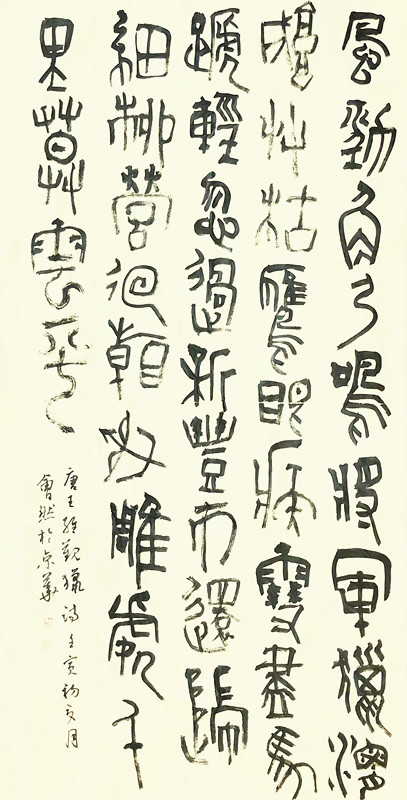 風勁角弓鳴將軍獵渭
城艸枯鷹眼疾雪盡馬
蹏輕忽過新豐市還歸
細柳營迴看射雕處千
里暮雲平
唐王維觀獵詩壬寅初夏月
會然於京華